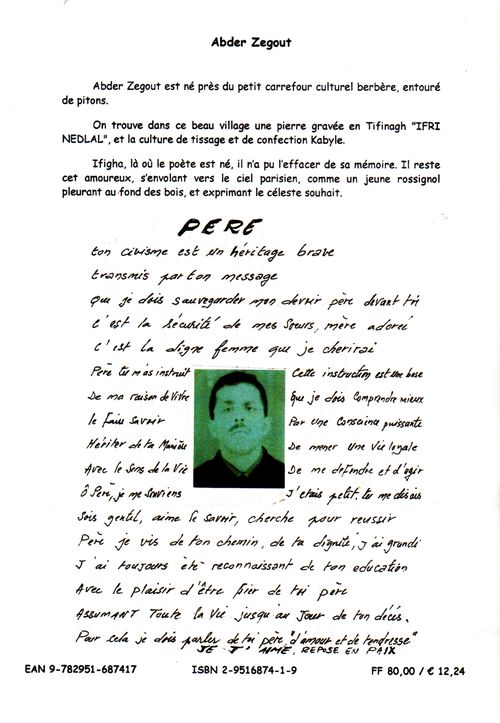 Abder Zegout
Abder Zegout est né près du petit carrefour culturel berbère, entouré
de pitons.
On trouve dans ce beau village une pierre gravée en Tifinagh "IFRI
NEDLAL", et la culture de tissage et de confection Kabyle.
Ifigha, là où le poète est né, il n'a pu l'effacer de sa mémoire. Il reste
cet amoureux, s'envolant vers le ciel parisien, comme un jeune rossignol
pleurant au fond des bois, et exprimant le céleste souhait.
PERE
ton civisme est un héritage brave
transmis par ton message
que je dois sauvegarder mon devoir père devant toi
C'est la sécurité de mes Sœurs, mère adorée
C'est la digne femme que je cherirai
Père tu m'as instruit Cette instruction est une base
De ma raison de Vivre Que je dois Comprendre mieux
le faire savoir Par une Conscience puissante
Hériter de ta Manière De mener une Vie loyale
Avec le Sens de la Vie De me defendre et d'agir
Ô Père, je me souviens J'etais petit, tu me disais
Sois gentil, aime le savoir, cherche pour reussir
Père je vis de ton chemin, de ta dignité, j'ai grandi
J'ai toujours été reconnaissant de ton education
Avec le plaisir d'être fier de toi père
Assumant Toute la Vie jusqu'au Jour de ton décès.
Pour cela je dois parler de toi père "d'amour et de tendresse"
JE T'AIME, REPOSE EN PAIX
EAN 9-782951-687417 ISBN 2-9516874-1-9 FF 80,00 / € 12,24